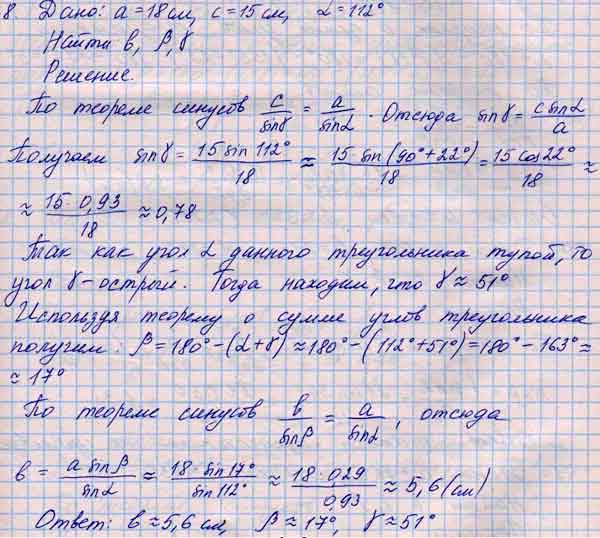 8. Дано: a = 18 см, c = 15 см, α = 112°
Найти в, β, γ
Решение.
По теореме синусов c/sinγ = a/sinα. Отсюда sinγ = c sinα/a
Получаем sinγ = 15 sin 112°/18 ≈ 15 sin(90°+22°)/18 = 15 cos22°/18 ≈
≈ 15·0,93/18 ≈ 0,78
Так как угол α данного треугольника тупой, то
угол γ - острый. Тогда находим, что γ ≈ 51°
Используя теорему о сумме углов треугольника
получим: β = 180° - (α+γ) ≈ 180° - (112° + 51°) = 180° - 163° =
≈ 17°
По теореме синусов в/sinβ = a/sinα, отсюда
в = a sinβ/sinα ≈ 18·sin17°/sin112° ≈ 18·0,29/0,93 ≈ 5,6 (см)
Ответ: в ≈ 5,6 см, β ≈ 17°, γ ≈ 51°